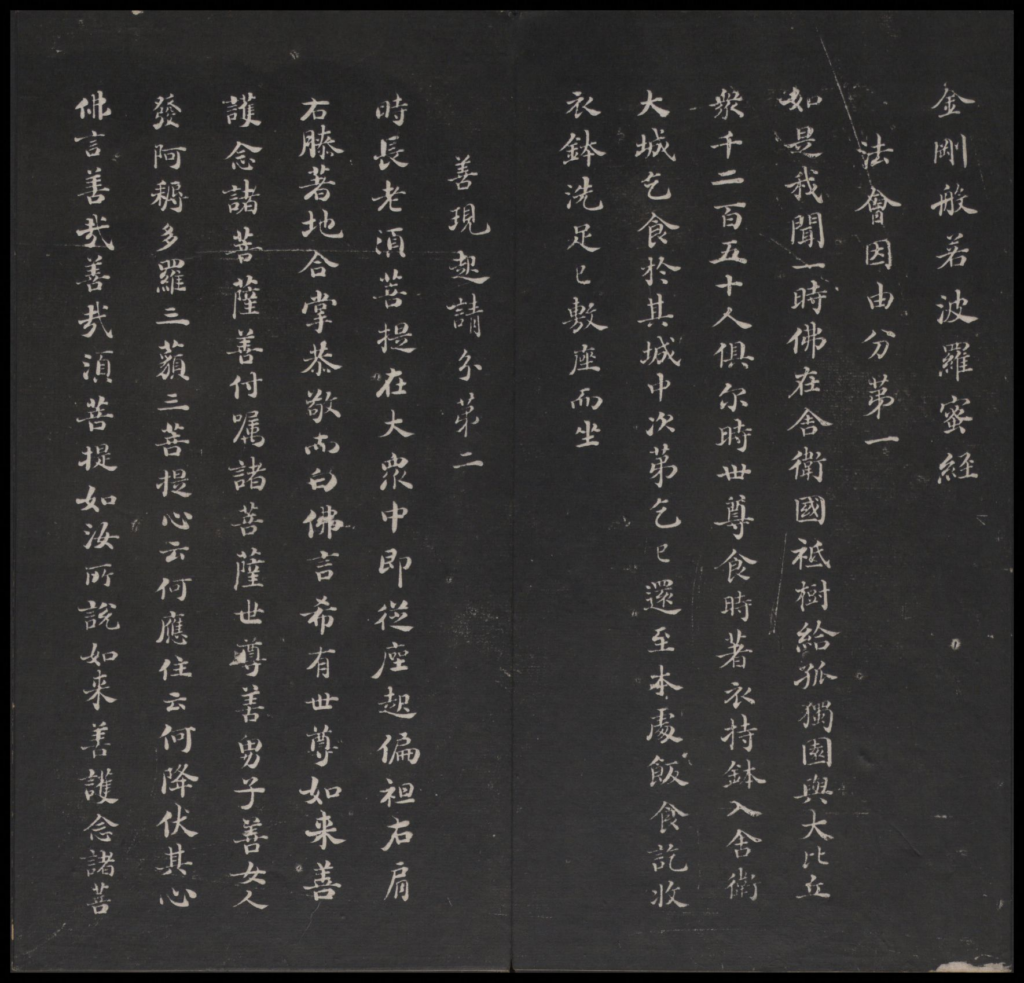 金剛般若波羅蜜經
法會因由分第一
如是我聞一時佛在舍衛國祗樹給孤獨園與大比丘
衆千二百五十人俱尔時世尊食時著衣持鉢入舍衛
大城乞食於其城中次第乞已還至本處飯食訖收
衣鉢洗足已敷座而坐
善現起請分第二
時長老湏菩提在大衆中即從座起偏袒右肩
右膝著地合掌恭敬而白佛言希有世尊如来善
護念諸菩薩善付嘱諸菩薩世尊善男子善女人
發阿耨多羅三藐三菩提心云何應住云何降伏其心
佛言善哉善哉湏菩提如汝所説如来善護念諸菩